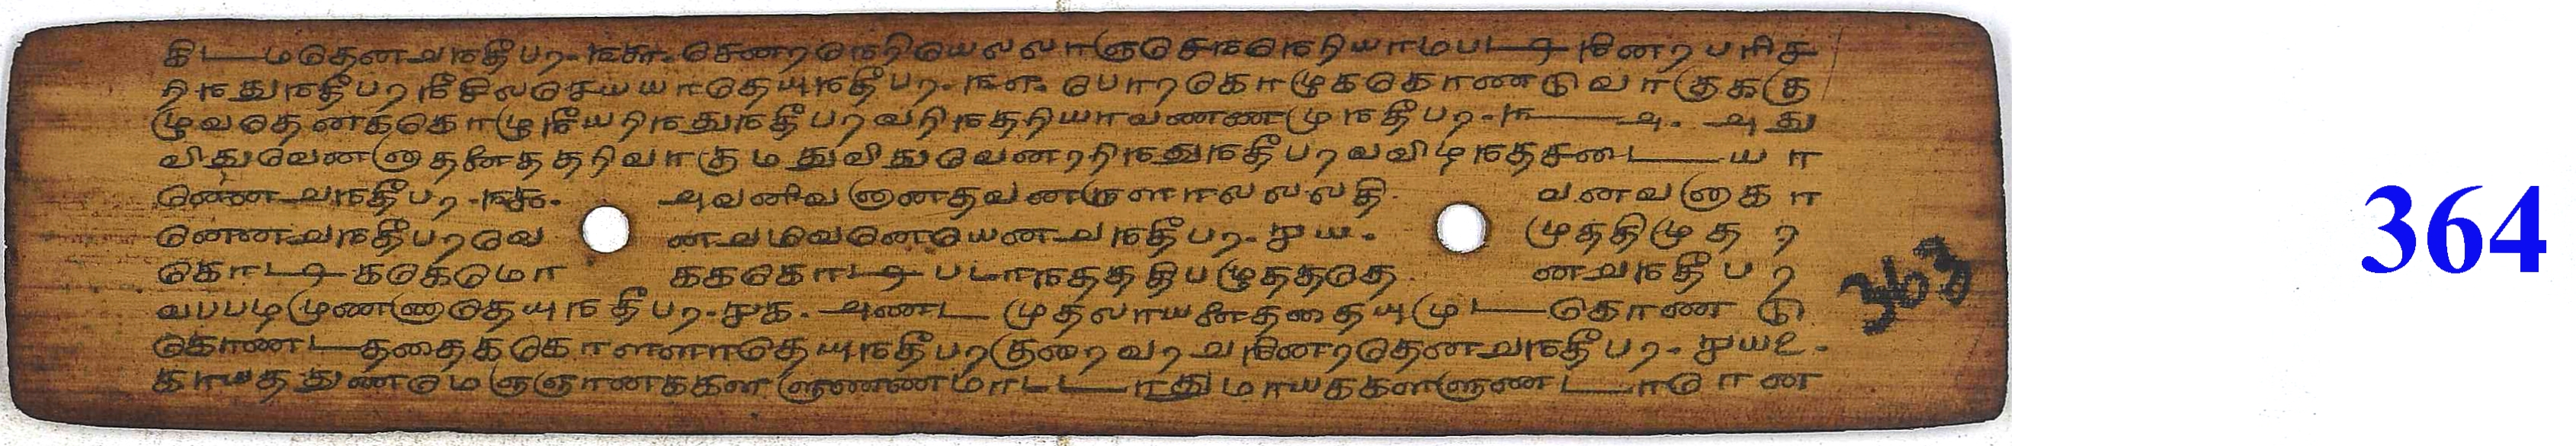 கிடமதெனவநதீபர-௩௬-செனறநெரியெலலாஞசெநநெரியாமபடிநினறபரிசு
ரிநதுநதீபரநிசிலசெயயாதெயுநதீபர-௩௭-பொரகொழுககொணடுவாகுககு
முவதெனககொழுநீயரிநதுநதீபரவரிநதரியாவணணமுநதீபர-௩௮-அது
விதுவெனனாதனைததரிவாகுமதுவிதுவெனறறிநதுநதீபரவவிழநதசடையா
னெனவநதீபர-௩௯- அவனிவனானதவனருளாலலலதி வனவனாகா
னெனவநதீபரவெ னவமவனெயெனவநதீபர-௪௰- முததிமுத ர
கொடிகடுககுமா ககொடி படாநதததிபழுதததெ னவநதீபர
வபபழமுணணாதெயுநதீபர-௪௧-அணட முதலாயனைததையுமுடகொணடு
கொணடததைககொளளாதெயுநதீபரகுறைவறவநினறதெனவநதீபர-௪௰௨-
காயததுணமெஞஞானககளளுணணமாடடாதுமாயககளளுணடாரென
363
364